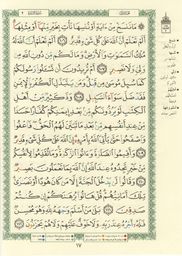 مَا نَنسَخْ مِنْ ءَايَةٍ أَوْ نُنسِهَا نَأْتِ بِخَيْرٍ مِّنْهَا أَوْ مِثْلِهَا
أَلَمْ تَعْلَمْ أَنَّ ٱللَّهَ عَلَىٰ كُلِّ شَىْءٍ قَدِيرٌ ١٠٦ أَلَمْ تَعْلَمْ أَنَّ ٱللَّهَ لَهُۥ
مُلْكُ ٱلسَّمَٰوَٰتِ وَٱلْأَرْضِ وَمَا لَكُم مِّن دُونِ ٱللَّهِ مِن
وَلِىٍّ وَلَا نَصِيرٍ ١٠٧ أَمْ تُرِيدُونَ أَن تَسْـَٔلُوا۟ رَسُولَكُمْ
كَمَا سُئِلَ مُوسَىٰ مِن قَبْلُ وَمَن يَتَبَدَّلِ ٱلْكُفْرَ بِٱلْإِيمَٰنِ
فَقَدْ ضَلَّ سَوَآءَ ٱلسَّبِيلِ ١٠٨ وَدَّ كَثِيرٌ مِّنْ أَهْلِ
ٱلْكِتَٰبِ لَوْ يَرُدُّونَكُم مِّنۢ بَعْدِ إِيمَٰنِكُمْ كُفَّارًا حَسَدًا
مِّنْ عِندِ أَنفُسِهِم مِّنۢ بَعْدِ مَا تَبَيَّنَ لَهُمُ ٱلْحَقُّ فَٱعْفُوا۟
وَٱصْفَحُوا۟ حَتَّىٰ يَأْتِىَ ٱللَّهُ بِأَمْرِهِۦٓ إِنَّ ٱللَّهَ عَلَىٰ كُلِّ شَىْءٍ قَدِيرٌ ١٠٩
وَأَقِيمُوا۟ ٱلصَّلَوٰةَ وَءَاتُوا۟ ٱلزَّكَوٰةَ وَمَا تُقَدِّمُوا۟ لِأَنفُسِكُم
مِّنْ خَيْرٍ تَجِدُوهُ عِندَ ٱللَّهِ إِنَّ ٱللَّهَ بِمَا تَعْمَلُونَ بَصِيرٌ ١١٠
وَقَالُوا۟ لَن يَدْخُلَ ٱلْجَنَّةَ إِلَّا مَن كَانَ هُودًا أَوْ نَصَٰرَىٰ
تِلْكَ أَمَانِيُّهُمْ قُلْ هَاتُوا۟ بُرْهَٰنَكُمْ إِن كُنتُمْ صَٰدِقِينَ
١١١ بَلَىٰ مَنْ أَسْلَمَ وَجْهَهُۥ لِلَّهِ وَهُوَ مُحْسِنٌ
فَلَهُۥٓ أَجْرُهُۥ عِندَ رَبِّهِۦ وَلَا خَوْفٌ عَلَيْهِمْ وَلَا هُمْ يَحْزَنُونَ ١١٢
١٧